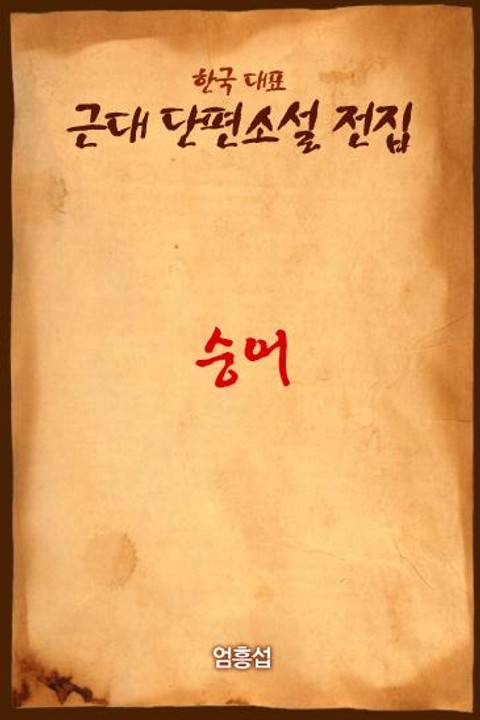 한국 대표
근대 단편소설 전집
숭어
엄흥섭